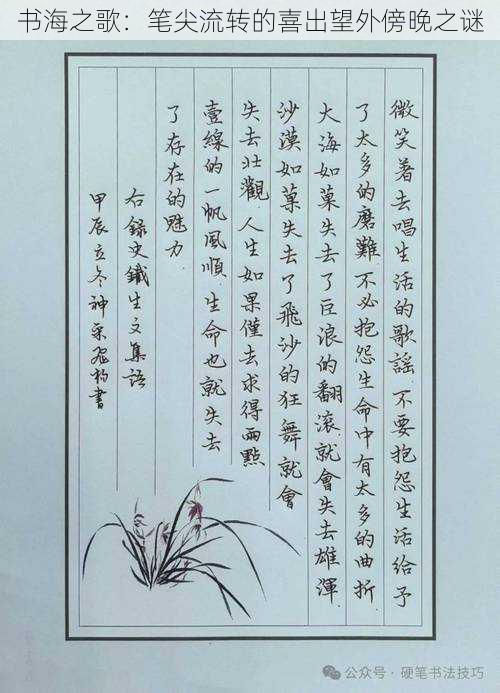 书海之歌：笔尖流转的喜出望外傍晚之谜
微笑著去唱生活的歌謠.不要抱怨生活给予
了太多的磨難.不必抱怨生命中有太多的曲折.
大海如菓失去了巨浪的翻滚.就會失去雄渾.
沙漠如菓失去了飛沙的狂舞就會
失去壯觀.人生如果僅去求得兩點
壹線的一帆風順.生命也就失去
了存在的魅力
右録史鐵生文集語
甲辰立冬神采書
公众号·硬笔书法技巧